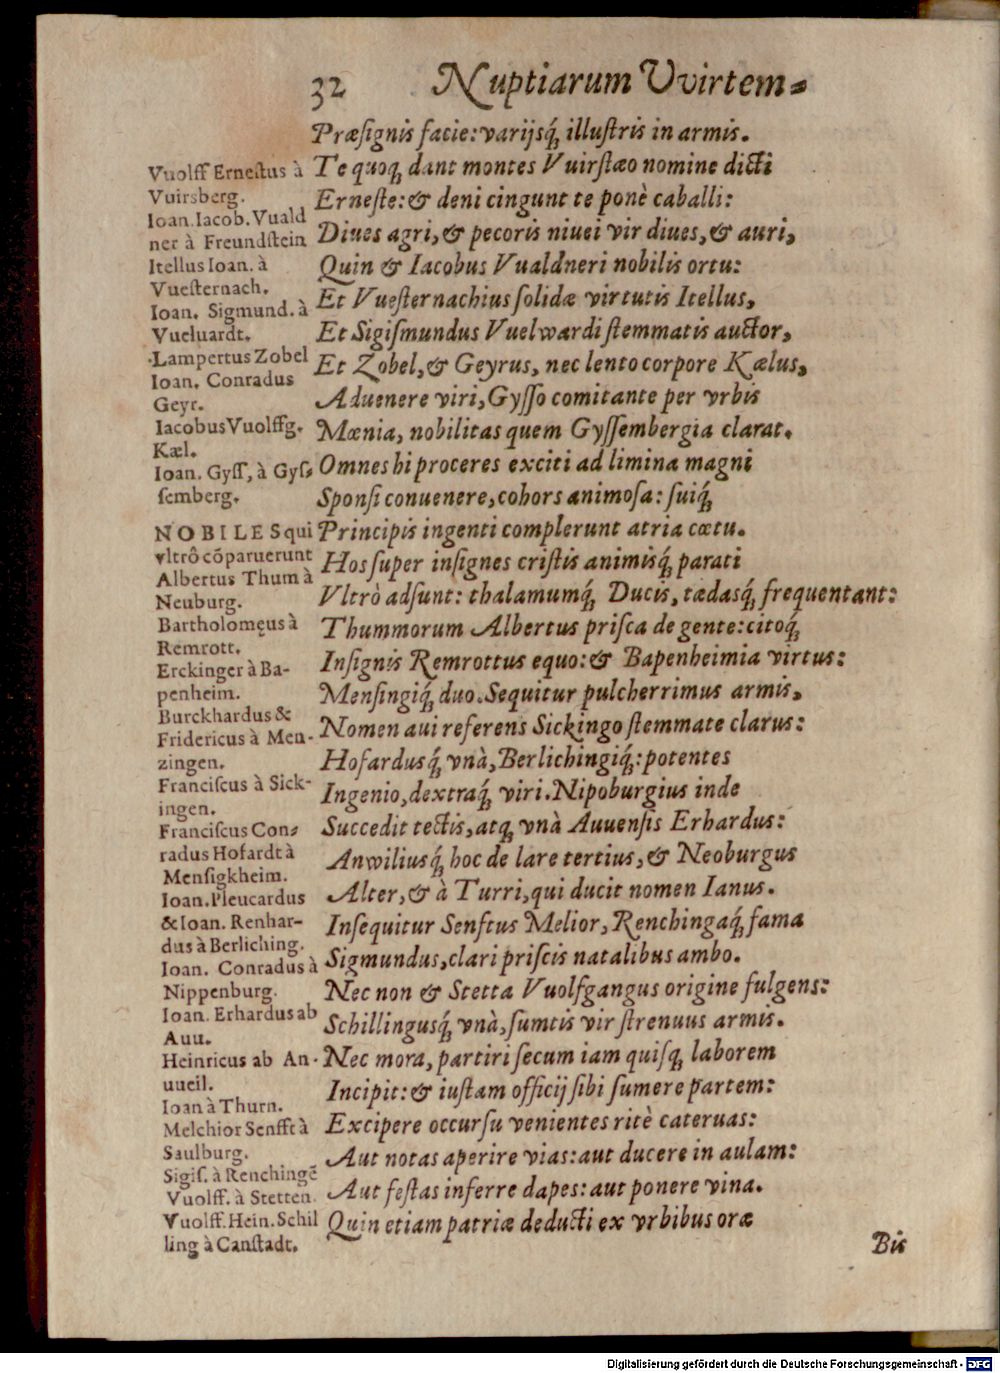 32 Nuptiarum Vvirtem-
Præſignis facie: varijsq́; illuſtris in armis.
Te quoq; dant montes Vuirſtæo nomine dicti
Erneſte: & deni cingunt te ponè caballi:
Diues agri, & pecoris niuei vir diues, & auri,
Quin & Iacobus Vualdneri nobilis ortu:
Et Vueſternachius ſolidæ virtutis Itellus,
Et Sigiſmundus Vuelwardi ſtemmatis auctor,
Et Zobel, & Geyrus, nec lento corpore Kælus,
Aduenere viri, Gyſſo comitante per vrbis
Mœnia, nobilitas quem Gyſſembergia clarat.
Omnes hi proceres exciti ad limina magni
Sponſi conuenere, cohors animoſa: ſuiq́;
Principis ingenti complerunt atria cœtu.
Hos ſuper inſignes criſtis animisq́; parati
Vltrò adſunt: thalamumq́; Ducis, tædasq́; frequentant:
Thummorum Albertus priſca de gente: citoq́;
Inſignis Remrottus equo: & Bapenheimia virtus:
Menſingiq́; duo. Sequitur pulcherrimus armis,
Nomen aui referens Sickingo ſtemmate clarus:
Hofardusq́; vnà, Berlichingiq́;: potentes
Ingenio, dextraq́; viri. Nipoburgius inde
Succedit tectis, atq; vnà Auuenſis Erhardus:
Anwiliusq́; hoc de lare tertius, & Neoburgus
Alter, & à Turri, qui ducit nomen Ianus.
Inſequitur Senftus Melior, Renchingaq́; fama
Sigmundus, clari priſcis natalibus ambo.
Nec non & Stetta Vuolfgangus origine fulgens:
Schillingusq́; vnà, ſumtis vir ſtrenuus armis.
Nec mora, partiri ſecum iam quiſq; laborem
Incipit: & iuſtam officij ſibi ſumere partem:
Excipere occurſu venientes ritè cateruas:
Aut notas aperire vias: aut ducere in aulam:
Aut feſtas inferre dapes: aut ponere vina.
Quin etiam patriæ deducti ex vrbibus oræ
Bis
Vuolff Erneſtus à
Vuirsberg.
Ioan. Iacob. Vuald
ner à Freundſtein
Itellus Ioan. à
Vueſternach.
Ioan. Sigmund. à
Vueluardt.
Lampertus Zobel
Ioan. Conradus
Geyr.
Iacobus Vuolffg.
Kæl.
Ioan. Gyſſ, à Gyſ-
ſemberg.
NOBILES qui
vltrô cōparuerunt
Albertus Thum à
Neuburg.
Bartholomęus à
Remrott.
Erckinger à Ba-
penheim.
Burckhardus &
Fridericus à Men-
zingen.
Franciſcus à Sick-
ingen.
Franciſcus Con-
radus Hofardt à
Menſigkheim.
Ioan. Pleucardus
& Ioan. Renhar-
dus à Berliching.
Ioan. Conradus à
Nippenburg.
Ioan. Erhardus ab
Auu.
Heinricus ab An-
uueil.
Ioan à Thurn.
Melchior Senfft à
Saulburg.
Sigiſ. à Renchingẽ
Vuolff. à Stetten.
Vuolff. Hein. Schil
ling à Canſtadt.
Digitalisierung gefördert durch die Deutsche Forschungsgemeinschaft - DFG